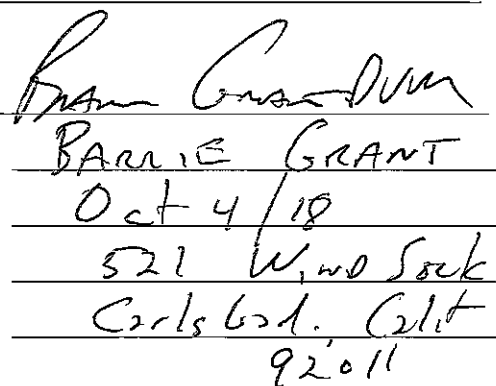 Barrie Grant DVM
BARRIE GRANT
Oct 4/18
521 Wind Sock
Carlsbad, Calif
92011